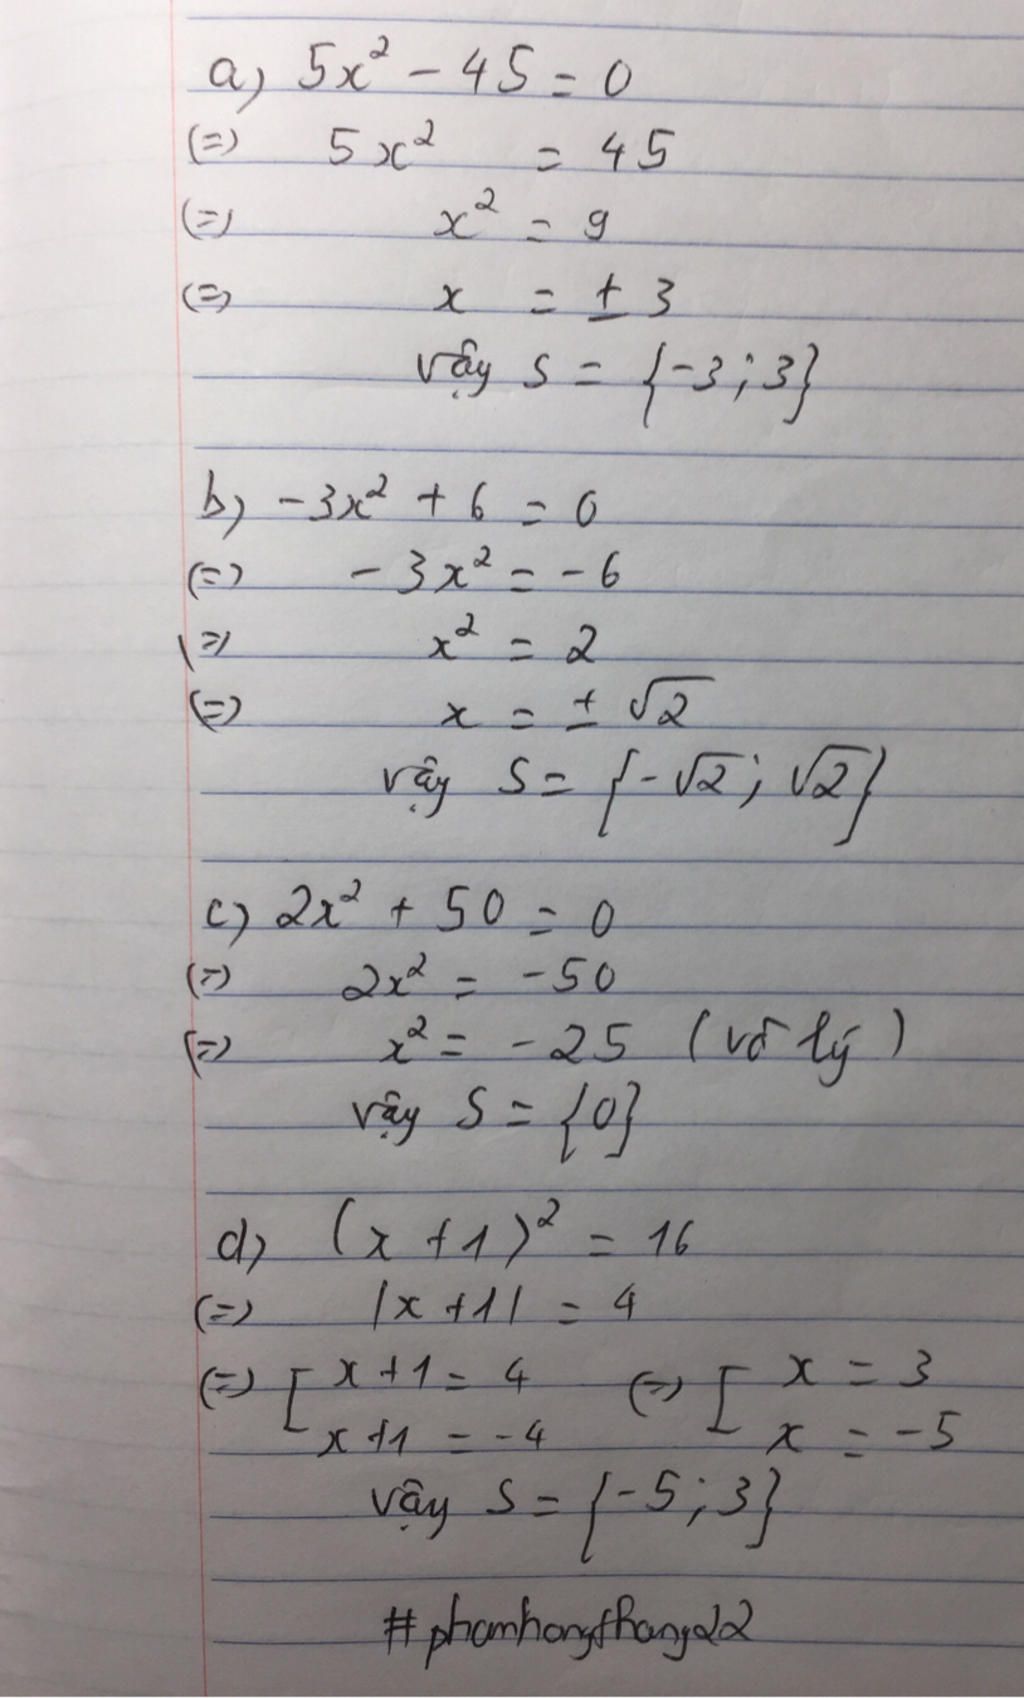 a) 5x² - 45 = 0
(=) 5x² = 45
(=) x² = 9
(=) x = ± 3
vậy S = {-3; 3}
b) -3x² + 6 = 0
(=) -3x² = -6
(=) x² = 2
(=) x = ± √2
vậy S = {-√2; √2}
c) 2x² + 50 = 0
(=) 2x² = -50
(=) x² = -25 (vô lý)
vậy S = {0}
d) (x + 1)² = 16
(=) |x + 1| = 4
(=) [ x + 1 = 4 (=) [ x = 3
x + 1 = -4 x = -5
vậy S = {-5; 3}
#phamhongthang22